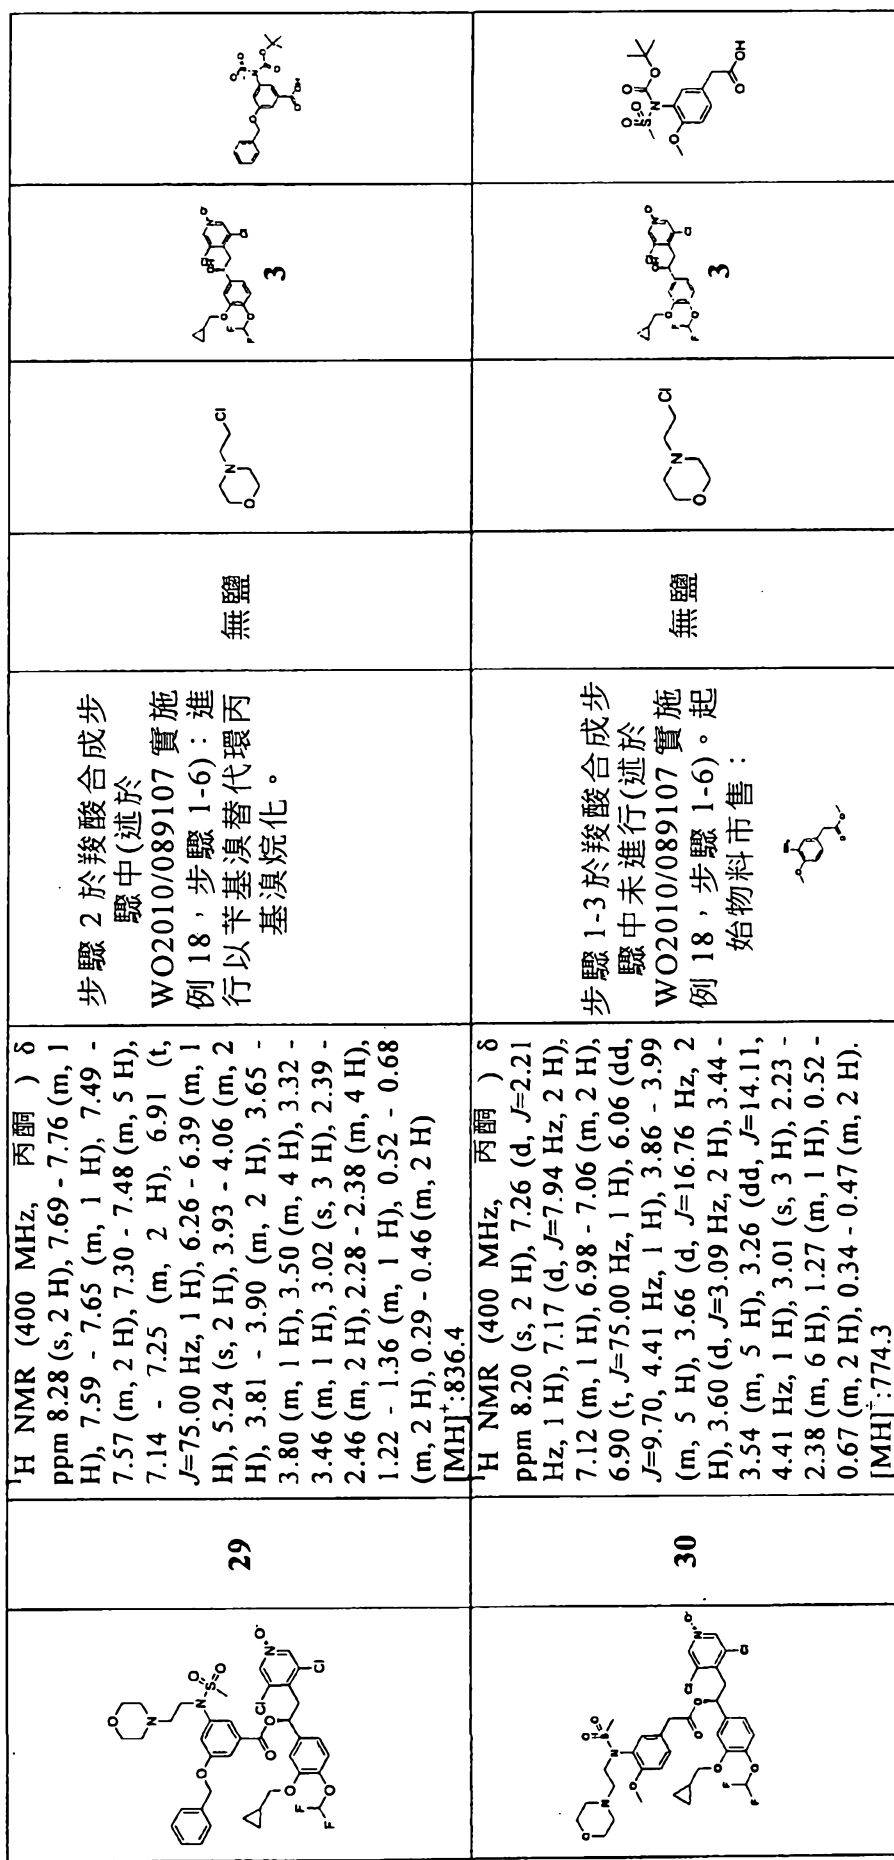 29
¹H NMR (400 MHz, 丙酮) δ
ppm 8.28 (s, 2 H), 7.69 - 7.76 (m, 1
H), 7.59 - 7.65 (m, 1 H), 7.49 -
7.57 (m, 2 H), 7.30 - 7.48 (m, 5 H),
7.14 - 7.25 (m, 2 H), 6.91 (t,
J=75.00 Hz, 1 H), 6.26 - 6.39 (m, 1
H), 5.24 (s, 2 H), 3.93 - 4.06 (m, 2
H), 3.81 - 3.90 (m, 2 H), 3.65 -
3.80 (m, 1 H), 3.50 (m, 4 H), 3.32 -
3.46 (m, 1 H), 3.02 (s, 3 H), 2.39 -
2.46 (m, 2 H), 2.28 - 2.38 (m, 4 H),
1.22 - 1.36 (m, 1 H), 0.52 - 0.68
(m, 2 H), 0.29 - 0.46 (m, 2 H)
[MH]⁺:836.4
步驟 2 於羧酸合成步
驟中(述於
WO2010/089107 實施
例 18，步驟 1-6)：進
行以苄基溴替代環丙
基溴烷化。
無鹽
3
30
¹H NMR (400 MHz, 丙酮) δ
ppm 8.20 (s, 2 H), 7.26 (d, J=2.21
Hz, 1 H), 7.17 (d, J=7.94 Hz, 2 H),
7.12 (m, 1 H), 6.98 - 7.06 (m, 2 H),
6.90 (t, J=75.00 Hz, 1 H), 6.06 (dd,
J=9.70, 4.41 Hz, 1 H), 3.86 - 3.99
(m, 5 H), 3.66 (d, J=16.76 Hz, 2
H), 3.60 (d, J=3.09 Hz, 2 H), 3.44 -
3.54 (m, 5 H), 3.26 (dd, J=14.11,
4.41 Hz, 1 H), 3.01 (s, 3 H), 2.23 -
2.38 (m, 6 H), 1.27 (m, 1 H), 0.52 -
0.67 (m, 2 H), 0.34 - 0.47 (m, 2 H).
[MH]⁺:774.3
步驟 1-3 於羧酸合成步
驟中未進行(述於
WO2010/089107 實施
例 18，步驟 1-6)。起
始物料市售：
無鹽
3